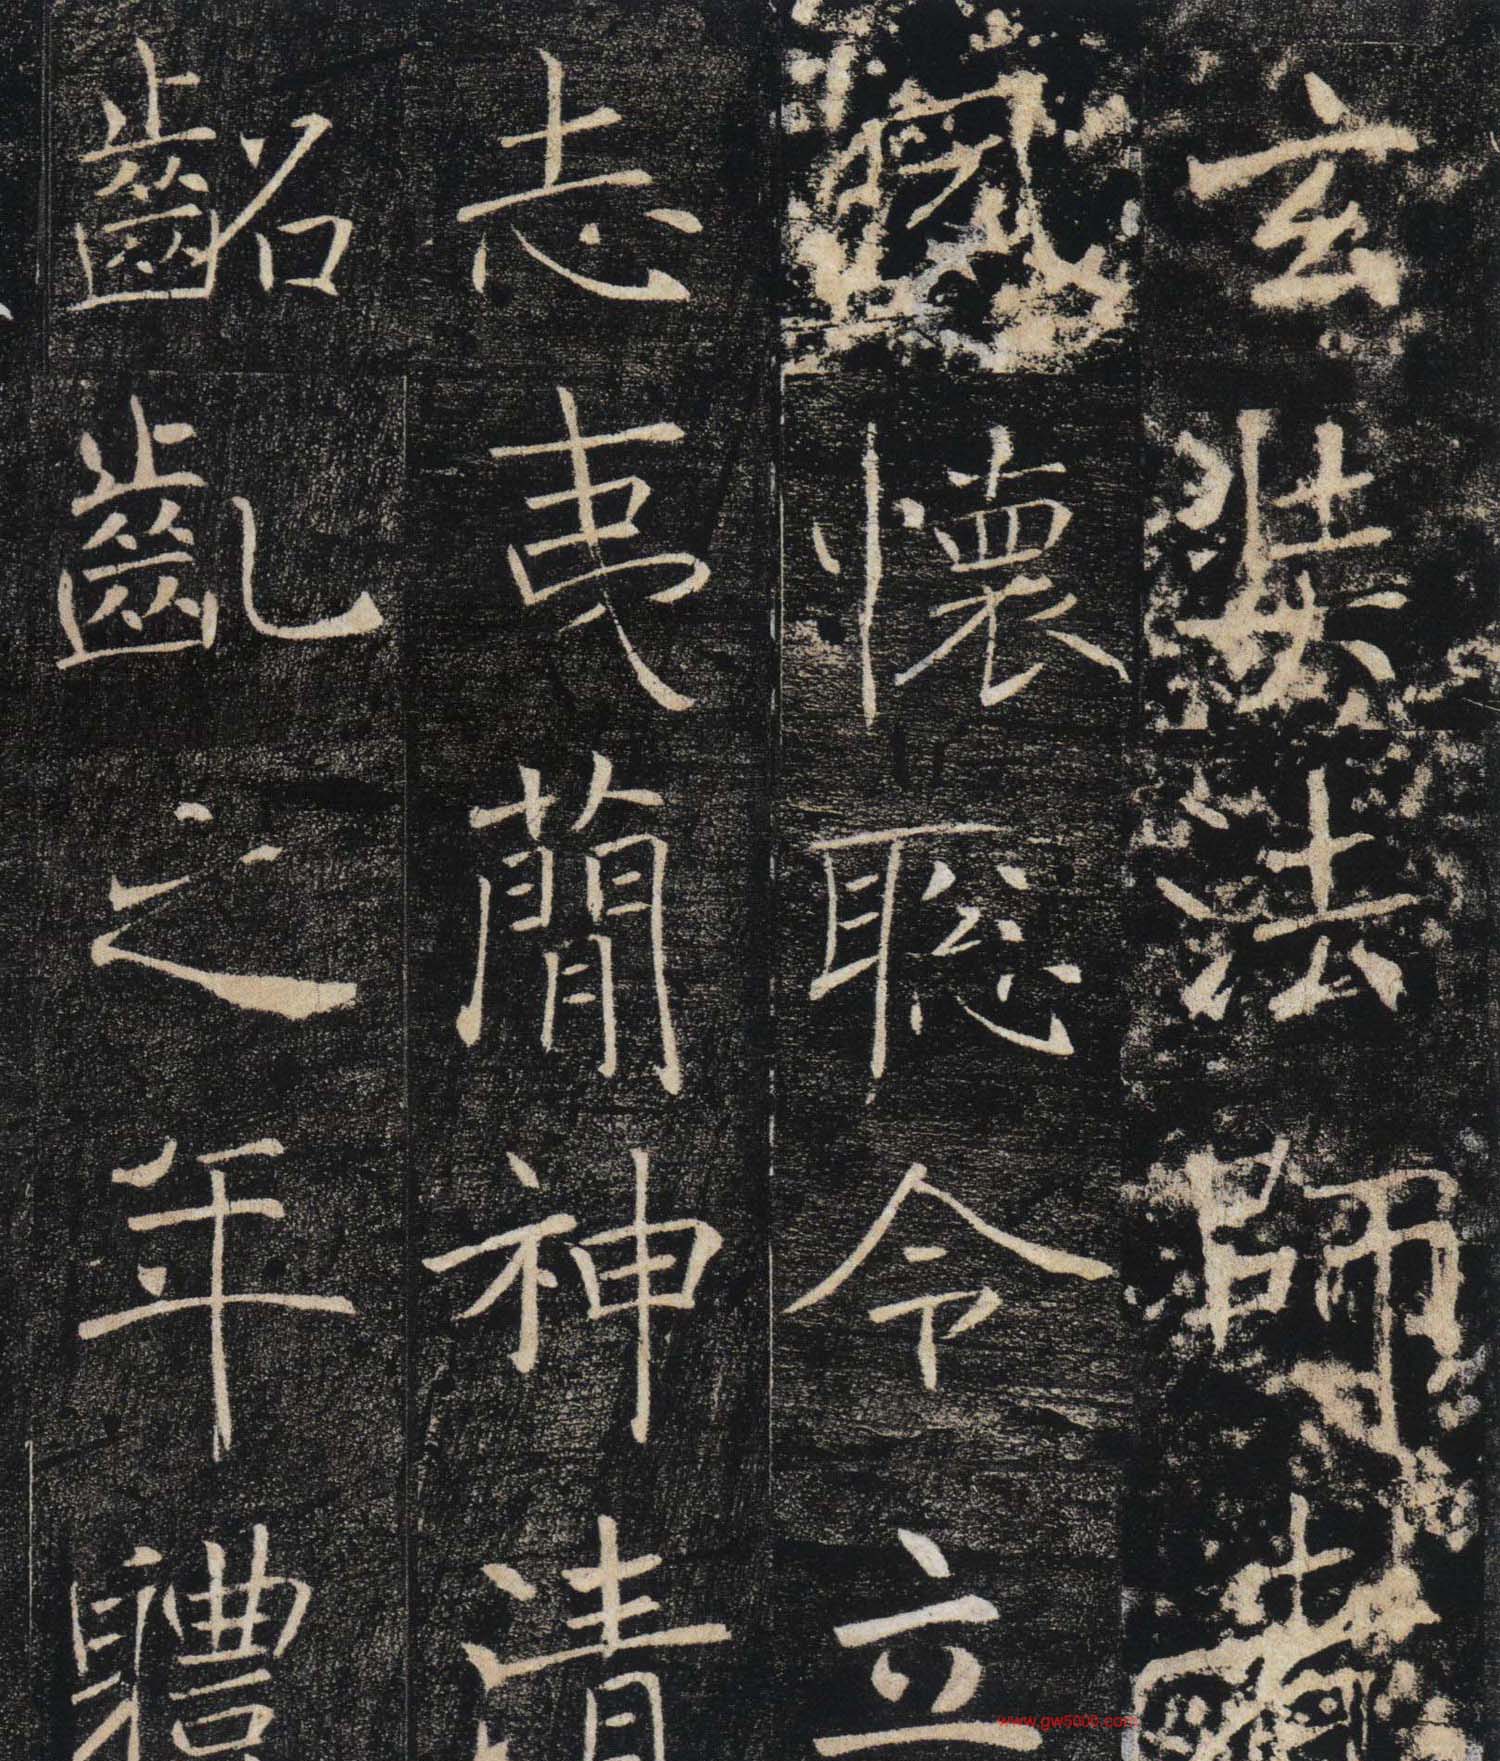 玄奘法師者
夙懷聰令立
志夷簡神清
齠齔之年體
www.gw5000.com